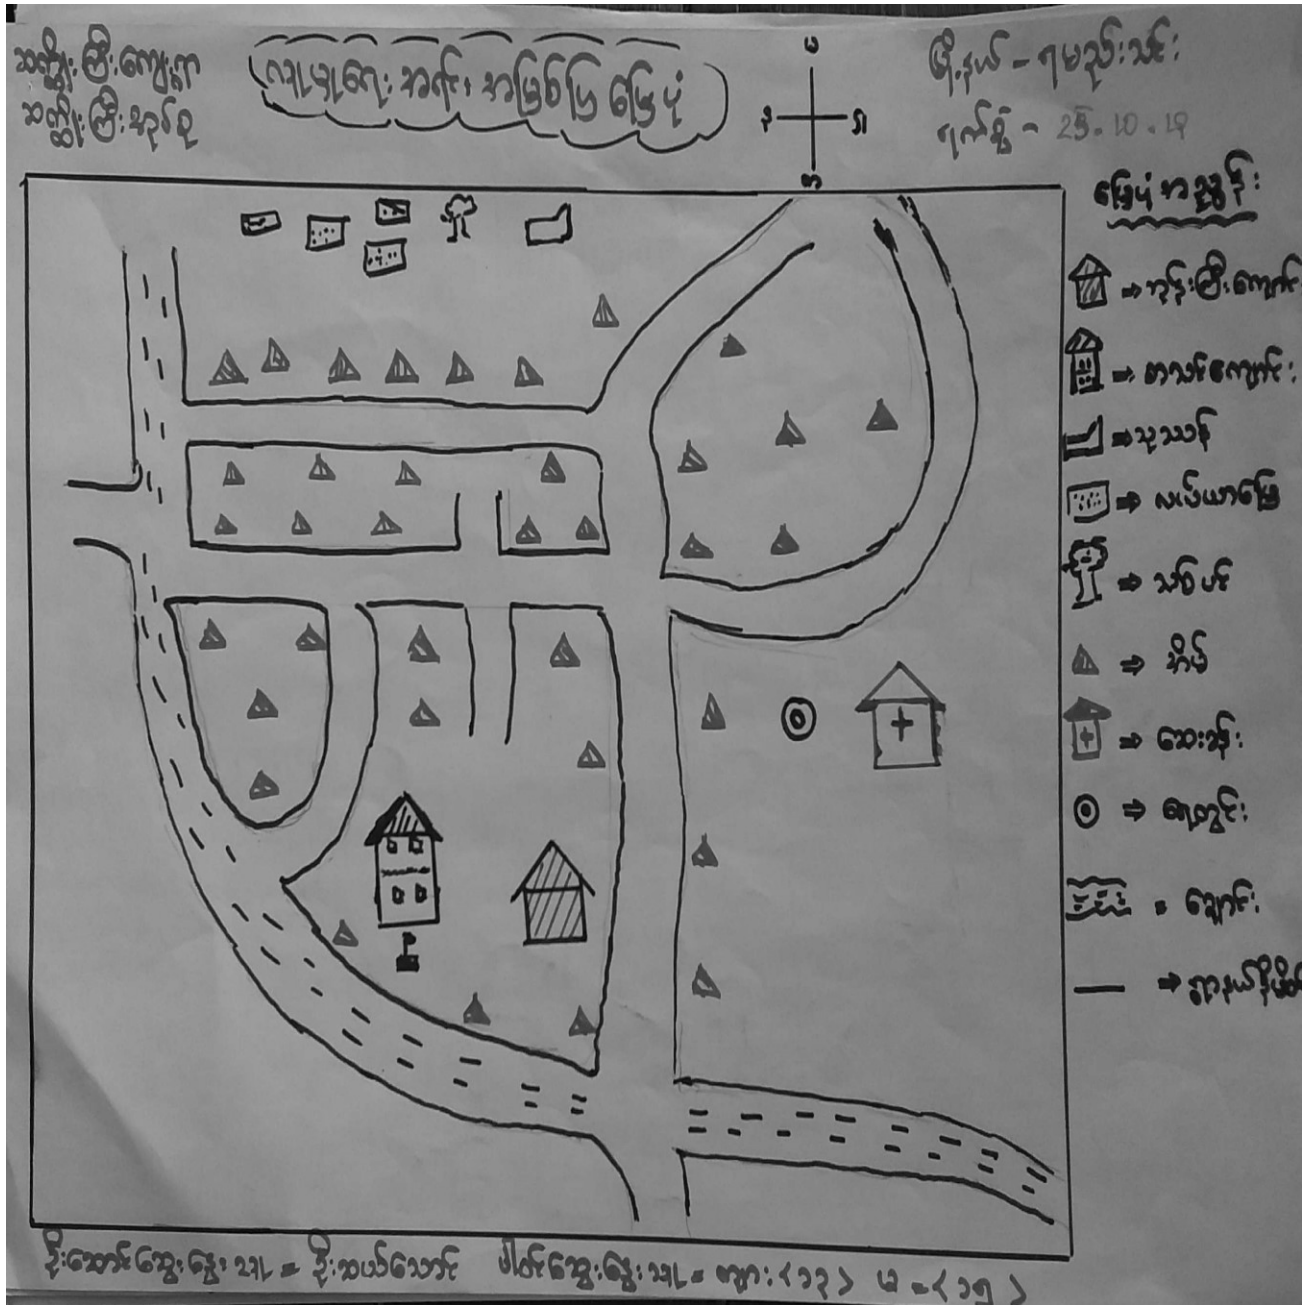 ဆတ္ထိုးကြီးကျေးရွာ
ဆတ္ထိုးကြီးအုပ်စု
လူမှုရေး အရင်းအမြစ်ပြ မြေပုံ
မြို့နယ် - ရမည်းသင်း
ရက်စွဲ - 25.10.19
မြေပုံအညွှန်း
⇒ ဘုန်းကြီးကျောင်း
⇒ စာသင်ကျောင်း
⇒ သုသာန်
⇒ လယ်ယာမြေ
⇒ သစ်ပင်
⇒ အိမ်
⇒ ဆေးခန်း
⇒ ရေတွင်း
= ချောင်း
⇒ ရွာနယ်နိမိတ်
ဦးဆောင်ဆွေးနွေးသူ = ဦးဆယ်သောင် ပါဝင်ဆွေးနွေးသူ = ကျား <၁၃> မ = <၁၅>